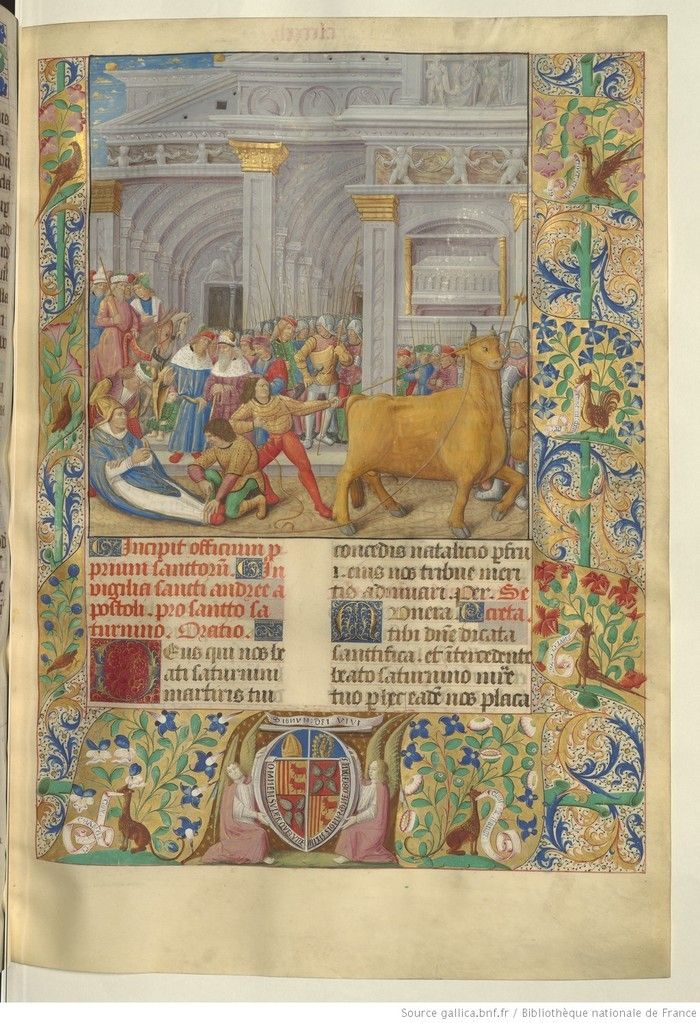 Incipit officium p
prium sanctorū. In
vigilia sancti andree a
postoli. pro sancto sa
turnino. Oratio.
Deus qui nos be
ati saturnini
martiris tui
concedis natalicio ꝑfru
i. eius nos tribue meri
tis adiuvari. Per. Se
Munera creta.
tibi dn̄e dicata
sanctifica. et ītercedente
beato saturnino mr̄e
tuo ꝑ hec eadē nos placa
Source gallica.bnf.fr / Bibliothèque nationale de France